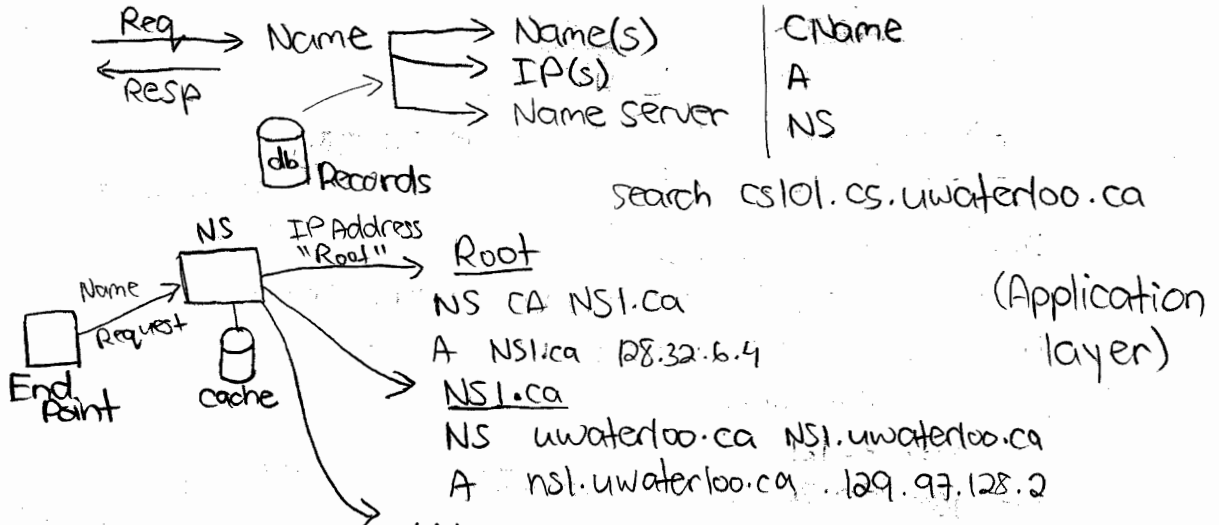 Req
Resp
Name
Name(s)
IP(s)
Name Server
CName
A
NS
db
Records
search cs101.cs.uwaterloo.ca
NS
IP Address
"Root"
Name
Request
End
Point
cache
Root
NS CA NS1.ca
A NS1.ca 128.32.6.4
(Application
layer)
NS1.ca
NS uwaterloo.ca NS1.uwaterloo.ca
A ns1.uwaterloo.ca 129.97.128.2